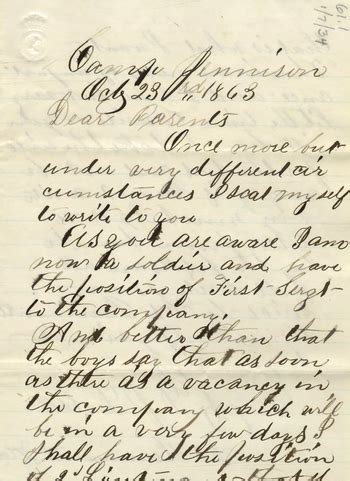 61.1
1/7/34
Camp Jennison
Oct 23rd, 1863
Dear Parents
Once more but
under very different cir
cumstances I seat myself
to write to you
As you are aware I am
now a soldier and have
the position of First Sergt
to the company.
And better than that
the boys say that as soon
as there as a vacancy in
the company which will
be in a very few days I
shall have the position
of 2d